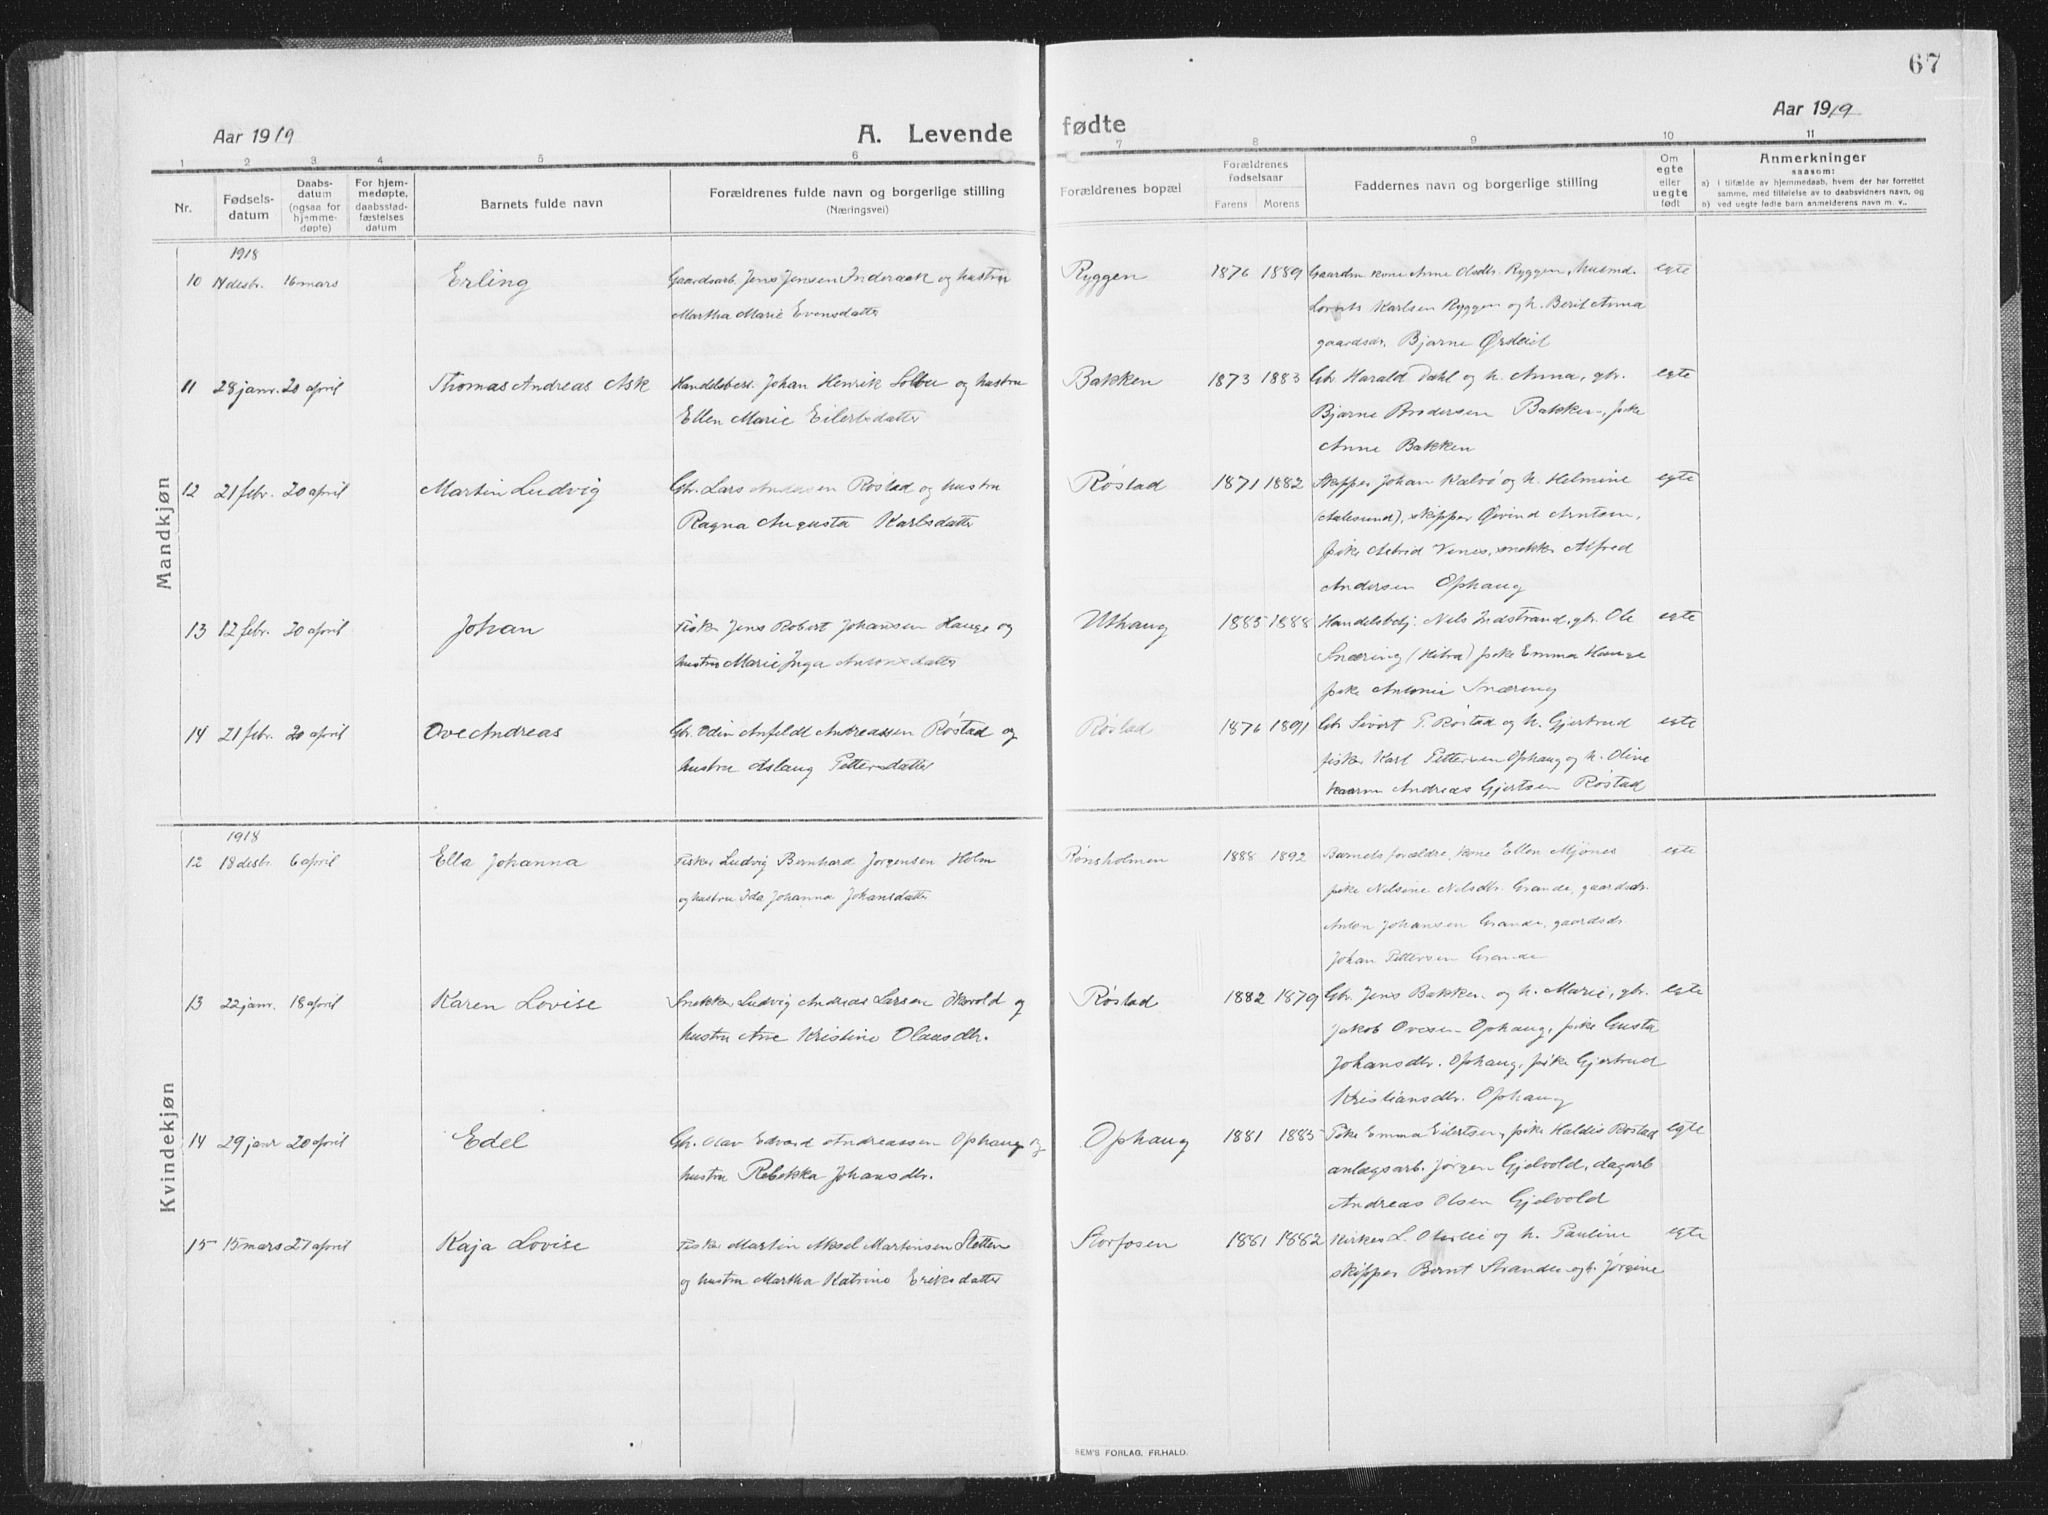 67
Aar 1919
A. Levende
fødte
Aar 1919
1 2 3 4 5 6 7 8 9 10 11
Nr.
Fødsels-
datum
Daabs-
datum
(ogsaa for
hjemme-
døpte)
For hjem-
medøpte,
daabsstad-
fæstelses
datum
Barnets fulde navn
Forældrenes fulde navn og borgerlige stilling
(Næringsvei)
Forældrenes bopæl
Forældrenes
fødselsaar
Farens Morens
Faddernes navn og borgerlige stilling
Om
egte
eller
uegte
født
Anmerkninger
saasom:
a) I tilfælde av hjemmedaab, hvem der har forrettet
samme, med tilføielse av to daabsvidners navn, og
b) ved uegte fødte barn anmelderens navn m. v..
Mandkjøn
1918
10 desbr. 16 mars Erling Gaardsarb. Jens Jensen Inderaak og hustru Ryggen 1876 1889 Gaardm. kone Anne Olsdtr. Ryggen, husmd. egte
Martha Marie Evensdatter Karlsen Ryggen og h. Berit Anna
gaardsdr. Bjarne
11 28 janr. 20 april Thomas Andreas Ask Handelsbest. Johan Henrik Solbu og hustru Bakken 1873 1883 Gbr Harald Dahl og h. Anna, gbr. egte
Ellen Marie Eilertsdatter Bjarne Brodersen Bakken, pike
Anne Bakken
12 21 febr. 20 april Martin Ludvig Gbr. Lars Andersen Røstad og hustru Røstad 1871 1882 Skipper Johan Kalvø og h. Helmine egte
Ragna Augusta Karlsdatter (Aalesund), skipper Øivind Arntsen,
pike Astrid Venes, snekker Alfred
Andersen Ophaug
13 12 febr. 20 april Johan Fisker Jens Robert Johansen Hauge og Uthaug 1885 1888 Handelsbetj. Nils Indstrand, gbr. Ole egte
hustru Marie Inga Antonsdatter Snæring (Hitra) pike Emma Hauge
pike Antonie Snæring
14 21 febr. 20 april Ove Andreas Gbr. Odin Anfeldt Andreassen Røstad og Røstad 1876 1891 Gbr Sivert P. Røstad og h. Gjertrud egte
hustru Aslaug Pettersdatter fisker Karl Pettersen Ophaug og h. Oline
Andreas Gjertsen Røstad
Kvindekjøn
1918
12 18 desbr 6 april Ella Johanna Fisker Ludvig Bernhard Jørgensen Holm Rønsholmen 1888 1892 Barnets forældre, kone Ellen Mjønes egte
og hustru Ida Johanna Johansdatter pike Nilsine Nilsdtr. Grande, gaardsdr.
Anton Johansen Grande, gaardsdr.
Johan Pettersen Grande
13 22 janr. 18 april Karen Lovise Snekker Ludvig Andreas Larsen og Røstad 1882 1879 Gbr. Jens Bakken og h. Marie, gbr. egte
hustru Ane Kristine Olausdtr. Jakob Ovesen Ophaug, pike Gusta
Johansdtr. Ophaug, pike Gjertrud
Kristiansdtr. Ophaug
14 29 janr 20 april Edel Gbr. Olav Edvard Andreassen Ophaug og Ophaug 1881 1885 Pike Emma Eilertsen, pike Haldis Røstad egte
hustru Rebekka Johansdtr. anlægsarb. Jørgen Gjelvold, dagarb
Andreas Olsen Gjelvold
15 15 mars 27 april Kaja Lovise Fisker Martin Aksel Martinsen Sletten Storfosen 1881 1882 Kirkes. L. og h. Pauline egte
og hustru Martha Katrine Eriksdatter skipper Bernt Strande og h. Jørgine
SEM'S FORLAG, FR.HALD.